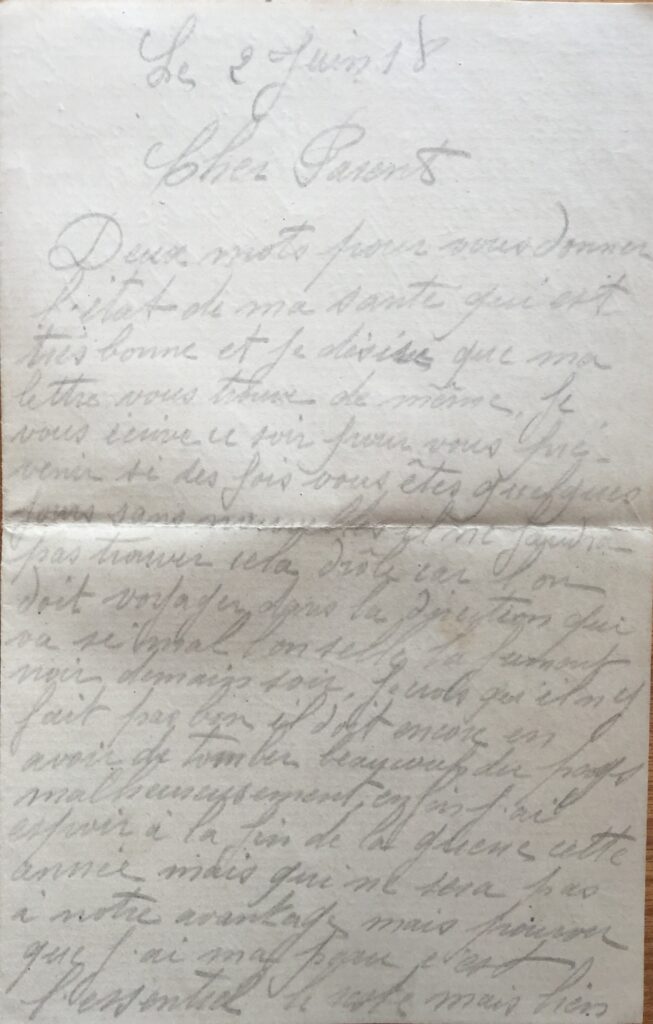 Le 2 Juin 18
Cher Parents
Deux mots pour vous donner
l'état de ma santé qui est
très bonne et je désire que ma
lettre vous trouve de même. Je
vous écrive ce soir pour vous pré-
venir si des fois vous êtes quelques
jours sans nouvelles il ne faudra
pas trouver cela drôle car l'on
doit voyager dans la direction que
va si mal l'on selle la jument
noir demain soir. Je crois qu'il n'y
fait pas bon il doit encore en
avoir de tomber beaucoup du pays
malheureusement, enfin j'ai
espoir à la fin de la guerre cette
année mais qui ne sera pas
à notre avantage mais pourvu
que j'ai ma peau c'est
l'essentiel le reste mais bien